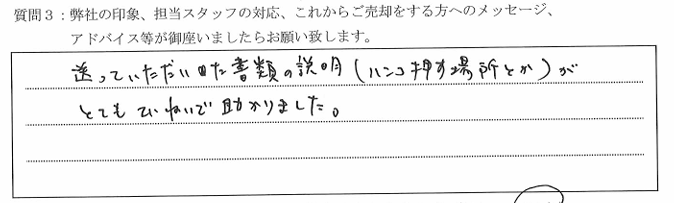 質問3：弊社の印象、担当スタッフの対応、これからご売却をする方へのメッセージ、
アドバイス等が御座いましたらお願い致します。
送っていただいた書類の説明（ハンコ押す場所とか）が
とてもていねいで助かりました。